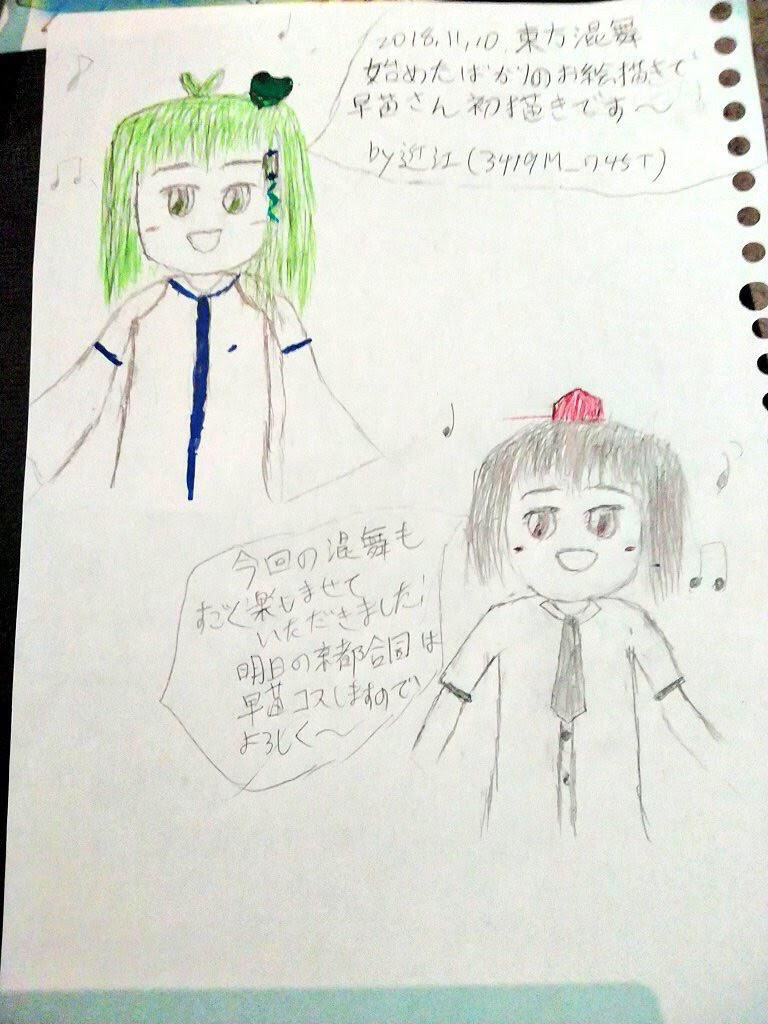 2018,11,10 東方混舞
始めたばかりのお絵描きで
早苗さん初描きです〜
by近江(3419M_745T)
今回の混舞も
すごく楽しませて
いただきました!
明日の京都合同は
早苗コスしますので
よろしく〜